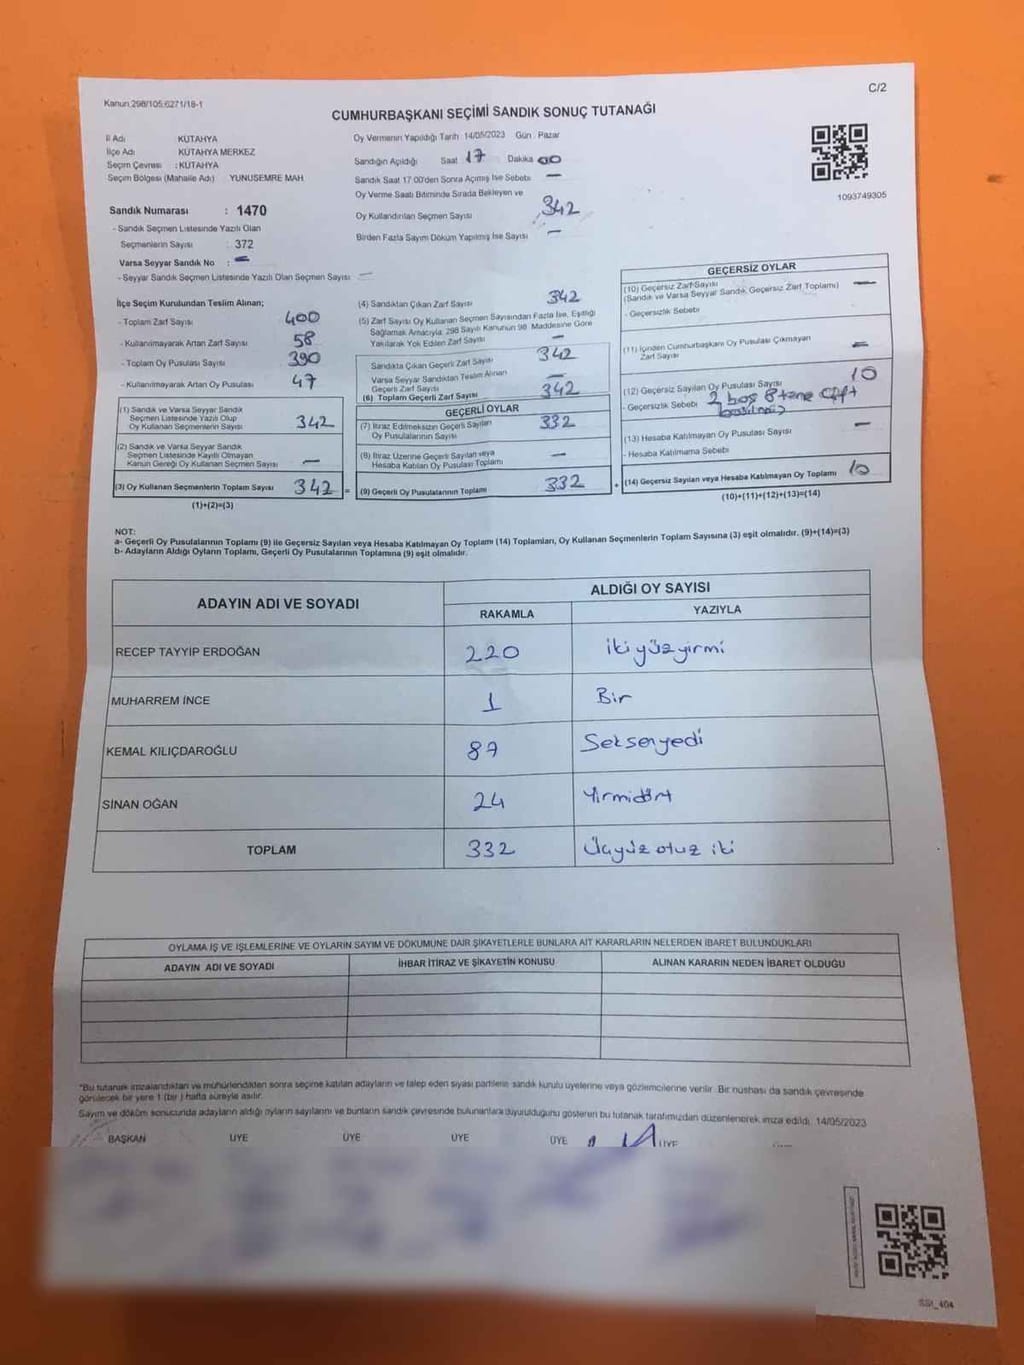 Kanun 298/105;6271/18-1
C/2
CUMHURBAŞKANI SEÇİMİ SANDIK SONUÇ TUTANAĞI
İl Adı : KÜTAHYA
İlçe Adı : KÜTAHYA MERKEZ
Seçim Çevresi : KÜTAHYA
Seçim Bölgesi (Mahalle Adı) YUNUSEMRE MAH.
Sandık Numarası : 1470
- Sandık Seçmen Listesinde Yazılı Olan
Seçmenlerin Sayısı : 372
Varsa Seyyar Sandık No : —
- Seyyar Sandık Seçmen Listesinde Yazılı Olan Seçmen Sayısı : —
Oy Vermenin Yapıldığı Tarih : 14/05/2023 Gün : Pazar
Sandığın Açıldığı Saat 17 Dakika 00
Sandık Saat 17.00'den Sonra Açılmış İse Sebebi —
Oy Verme Saati Bitiminde Sırada Bekleyen ve
Oy Kullandırılan Seçmen Sayısı 342
Birden Fazla Sayım Döküm Yapılmış İse Sayısı —
1093749305
İlçe Seçim Kurulundan Teslim Alınan;
- Toplam Zarf Sayısı 400
- Kullanılmayarak Artan Zarf Sayısı 58
- Toplam Oy Pusulası Sayısı 390
- Kullanılmayarak Artan Oy Pusulası 47
(1) Sandık ve Varsa Seyyar Sandık
Seçmen Listesinde Yazılı Olup
Oy Kullanan Seçmenlerin Sayısı 342
(2) Sandık ve Varsa Seyyar Sandık
Seçmen Listesinde Kayıtlı Olmayan
Kanun Gereği Oy Kullanan Seçmen Sayısı —
(3) Oy Kullanan Seçmenlerin Toplam Sayısı 342 =
(1)+(2)=(3)
(4) Sandıktan Çıkan Zarf Sayısı 342
(5) Zarf Sayısı Oy Kullanan Seçmen Sayısından Fazla İse, Eşitliği
Sağlamak Amacıyla; 298 Sayılı Kanunun 98. Maddesine Göre
Yakılarak Yok Edilen Zarf Sayısı —
Sandıkta Çıkan Geçerli Zarf Sayısı 342
Varsa Seyyar Sandıktan Teslim Alınan
Geçerli Zarf Sayısı —
(6) Toplam Geçerli Zarf Sayısı 342
GEÇERLİ OYLAR
(7) İtiraz Edilmeksizin Geçerli Sayılan
Oy Pusulalarının Sayısı 332
(8) İtiraz Üzerine Geçerli Sayılan veya
Hesaba Katılan Oy Pusulası Toplamı —
(9) Geçerli Oy Pusulalarının Toplamı 332 +
GEÇERSİZ OYLAR
(10) Geçersiz Zarf Sayısı
(Sandık ve Varsa Seyyar Sandık, Geçersiz Zarf Toplamı) —
- Geçersizlik Sebebi
(11) İçinden Cumhurbaşkanı Oy Pusulası Çıkmayan
Zarf Sayısı —
(12) Geçersiz Sayılan Oy Pusulası Sayısı 10
- Geçersizlik Sebebi 2 boş 8 tane çift
(13) Hesaba Katılmayan Oy Pusulası Sayısı —
- Hesaba Katılmama Sebebi
(14) Geçersiz Sayılan veya Hesaba Katılmayan Oy Toplamı 10
(10)+(11)+(12)+(13)=(14)
NOT:
a- Geçerli Oy Pusulalarının Toplamı (9) ile Geçersiz Sayılan veya Hesaba Katılmayan Oy Toplamı (14) Toplamları, Oy Kullanan Seçmenlerin Toplam Sayısına (3) eşit olmalıdır. (9)+(14)=(3)
b- Adayların Aldığı Oyların Toplamı, Geçerli Oy Pusulalarının Toplamına (9) eşit olmalıdır.
ADAYIN ADI VE SOYADI
ALDIĞI OY SAYISI
RAKAMLA YAZIYLA
RECEP TAYYİP ERDOĞAN 220 iki yüz yirmi
MUHARREM İNCE 1 Bir
KEMAL KILIÇDAROĞLU 87 Seksenyedi
SİNAN OĞAN 24 Yirmidört
TOPLAM 332 Üçyüz otuz iki
OYLAMA İŞ VE İŞLEMLERİNE VE OYLARIN SAYIM VE DÖKÜMÜNE DAİR ŞİKAYETLERLE BUNLARA AİT KARARLARIN NELERDEN İBARET BULUNDUKLARI
ADAYIN ADI VE SOYADI İHBAR İTİRAZ VE ŞİKAYETİN KONUSU ALINAN KARARIN NEDEN İBARET OLDUĞU
*Bu tutanak imzalandıktan ve mühürlendikten sonra seçime katılan adayların ve talep eden siyasi partilerin sandık kurulu üyelerine veya gözlemcilerine verilir. Bir nüshası da sandık çevresinde
görülecek bir yere 1 (bir) hafta süreyle asılır.
Sayım ve döküm sonucunda adayların aldığı oyların sayılarını ve bunların sandık çevresinde bulunanlara duyurulduğunu gösteren bu tutanak tarafımızdan düzenlenerek imza edildi. 14/05/2023
BAŞKAN ÜYE ÜYE ÜYE ÜYE ÜYE
SSt_404